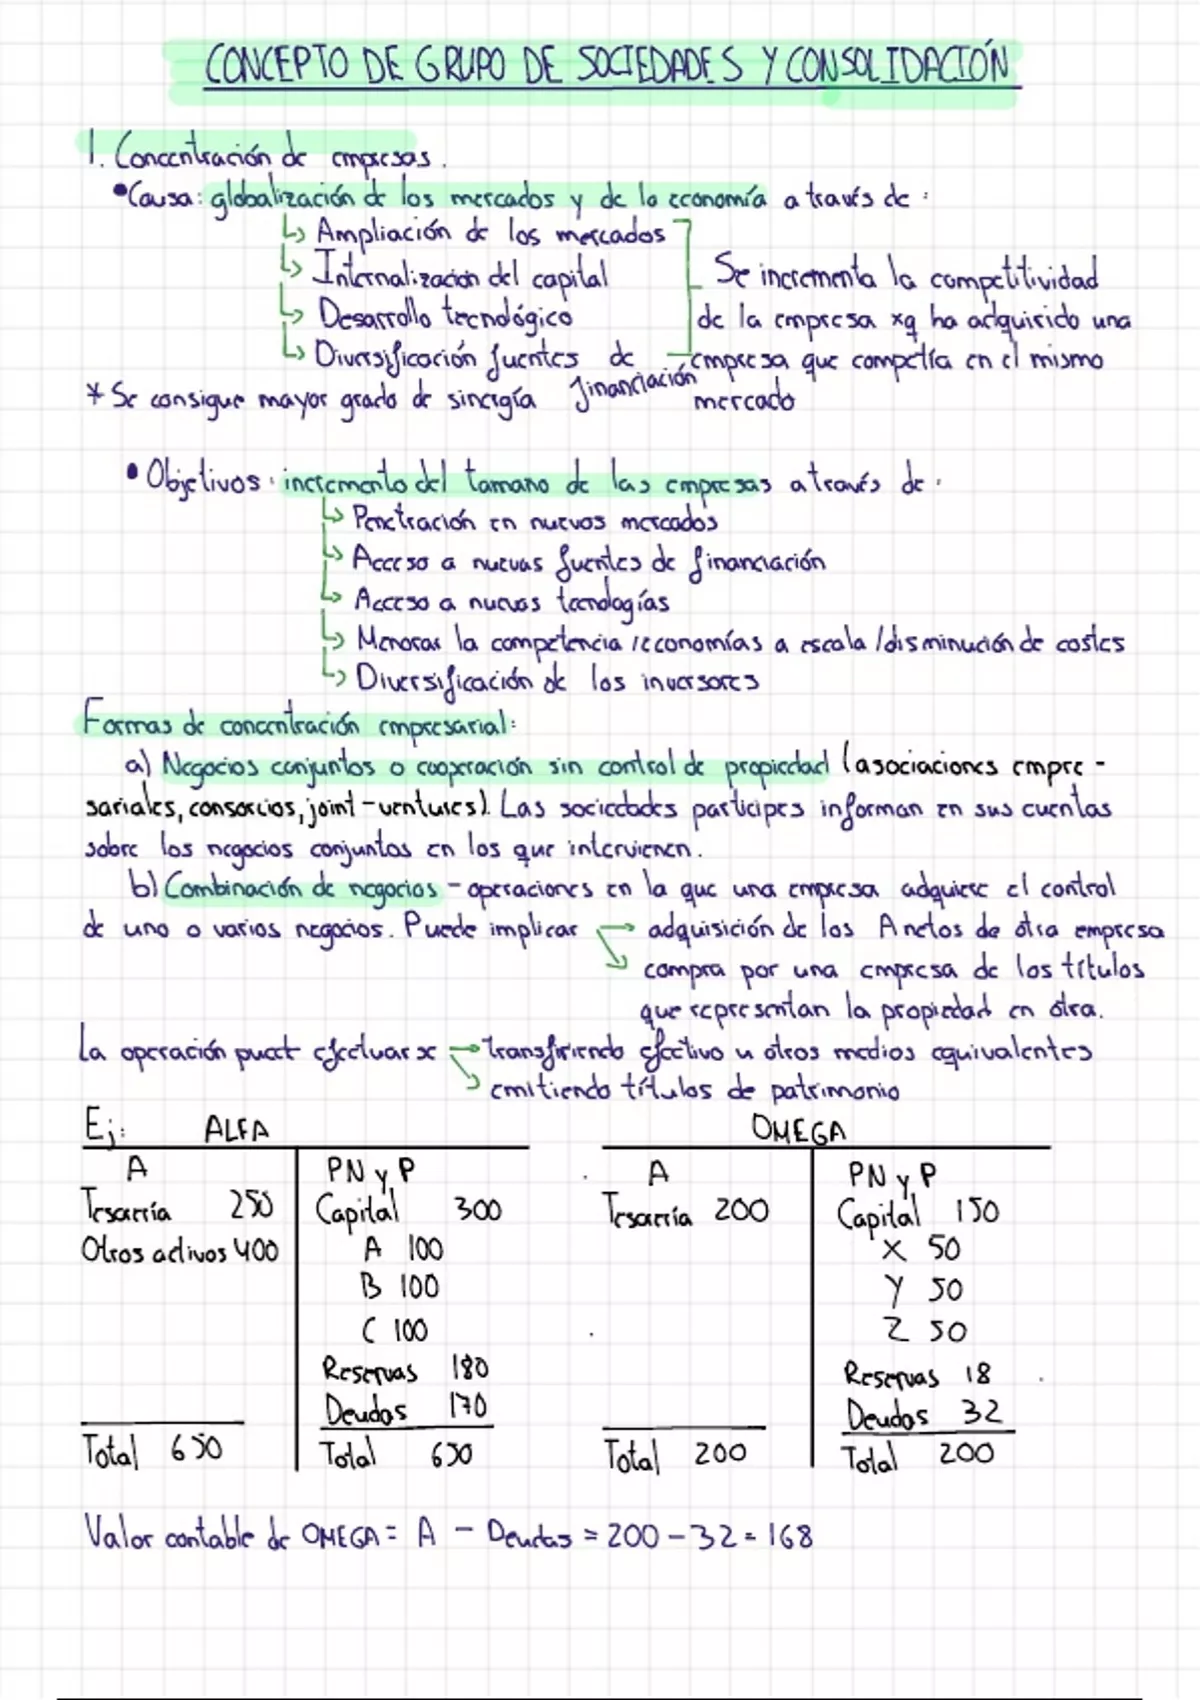 CONCEPTO DE GRUPO DE SOCIEDADES Y CONSOLIDACIÓN
1. Concentración de empresas.
• Causa: globalización de los mercados y de la economía a través de:
↳ Ampliación de los mercados
↳ Internalización del capital
↳ Desarrollo tecnológico
↳ Diversificación fuentes de financiación
Se incrementa la competitividad
de la empresa xq ha adquirido una
empresa que competía en el mismo
mercado
* Se consigue mayor grado de sinergía
• Objetivos: incremento del tamano de las empresas a través de:
↳ Penetración en nuevos mercados
↳ Acceso a nuevas fuentes de financiación
↳ Acceso a nuevas tecnologías
↳ Menorar la competencia /economías a escala /disminución de costes
↳ Diversificación de los inversores
Formas de concentración empresarial:
a) Negocios conjuntos o cooperación sin control de propiedad (asociaciones empre-
sariales, consorcios, joint-ventures). Las sociedades partícipes informan en sus cuentas
sobre los negocios conjuntos en los que intervienen.
b) Combinación de negocios - operaciones en la que una empresa adquiere el control
de uno o varios negocios. Puede implicar → adquisición de los A netos de otra empresa
↘ compra por una empresa de los títulos
que representan la propiedad en otra.
La operación puede efectuarse → transfiriendo efectivo u otros medios equivalentes
↘ emitiendo títulos de patrimonio
Ej: ALFA
A PN y P
Tesorería 250 Capital 300
Otros activos 400 A 100
B 100
C 100
Reservas 180
Deudas 170
Total 650 Total 650
OMEGA
A PN y P
Tesorería 200 Capital 150
X 50
Y 50
Z 50
Reservas 18
Deudas 32
Total 200 Total 200
Valor contable de OMEGA = A - Deudas = 200 - 32 = 168